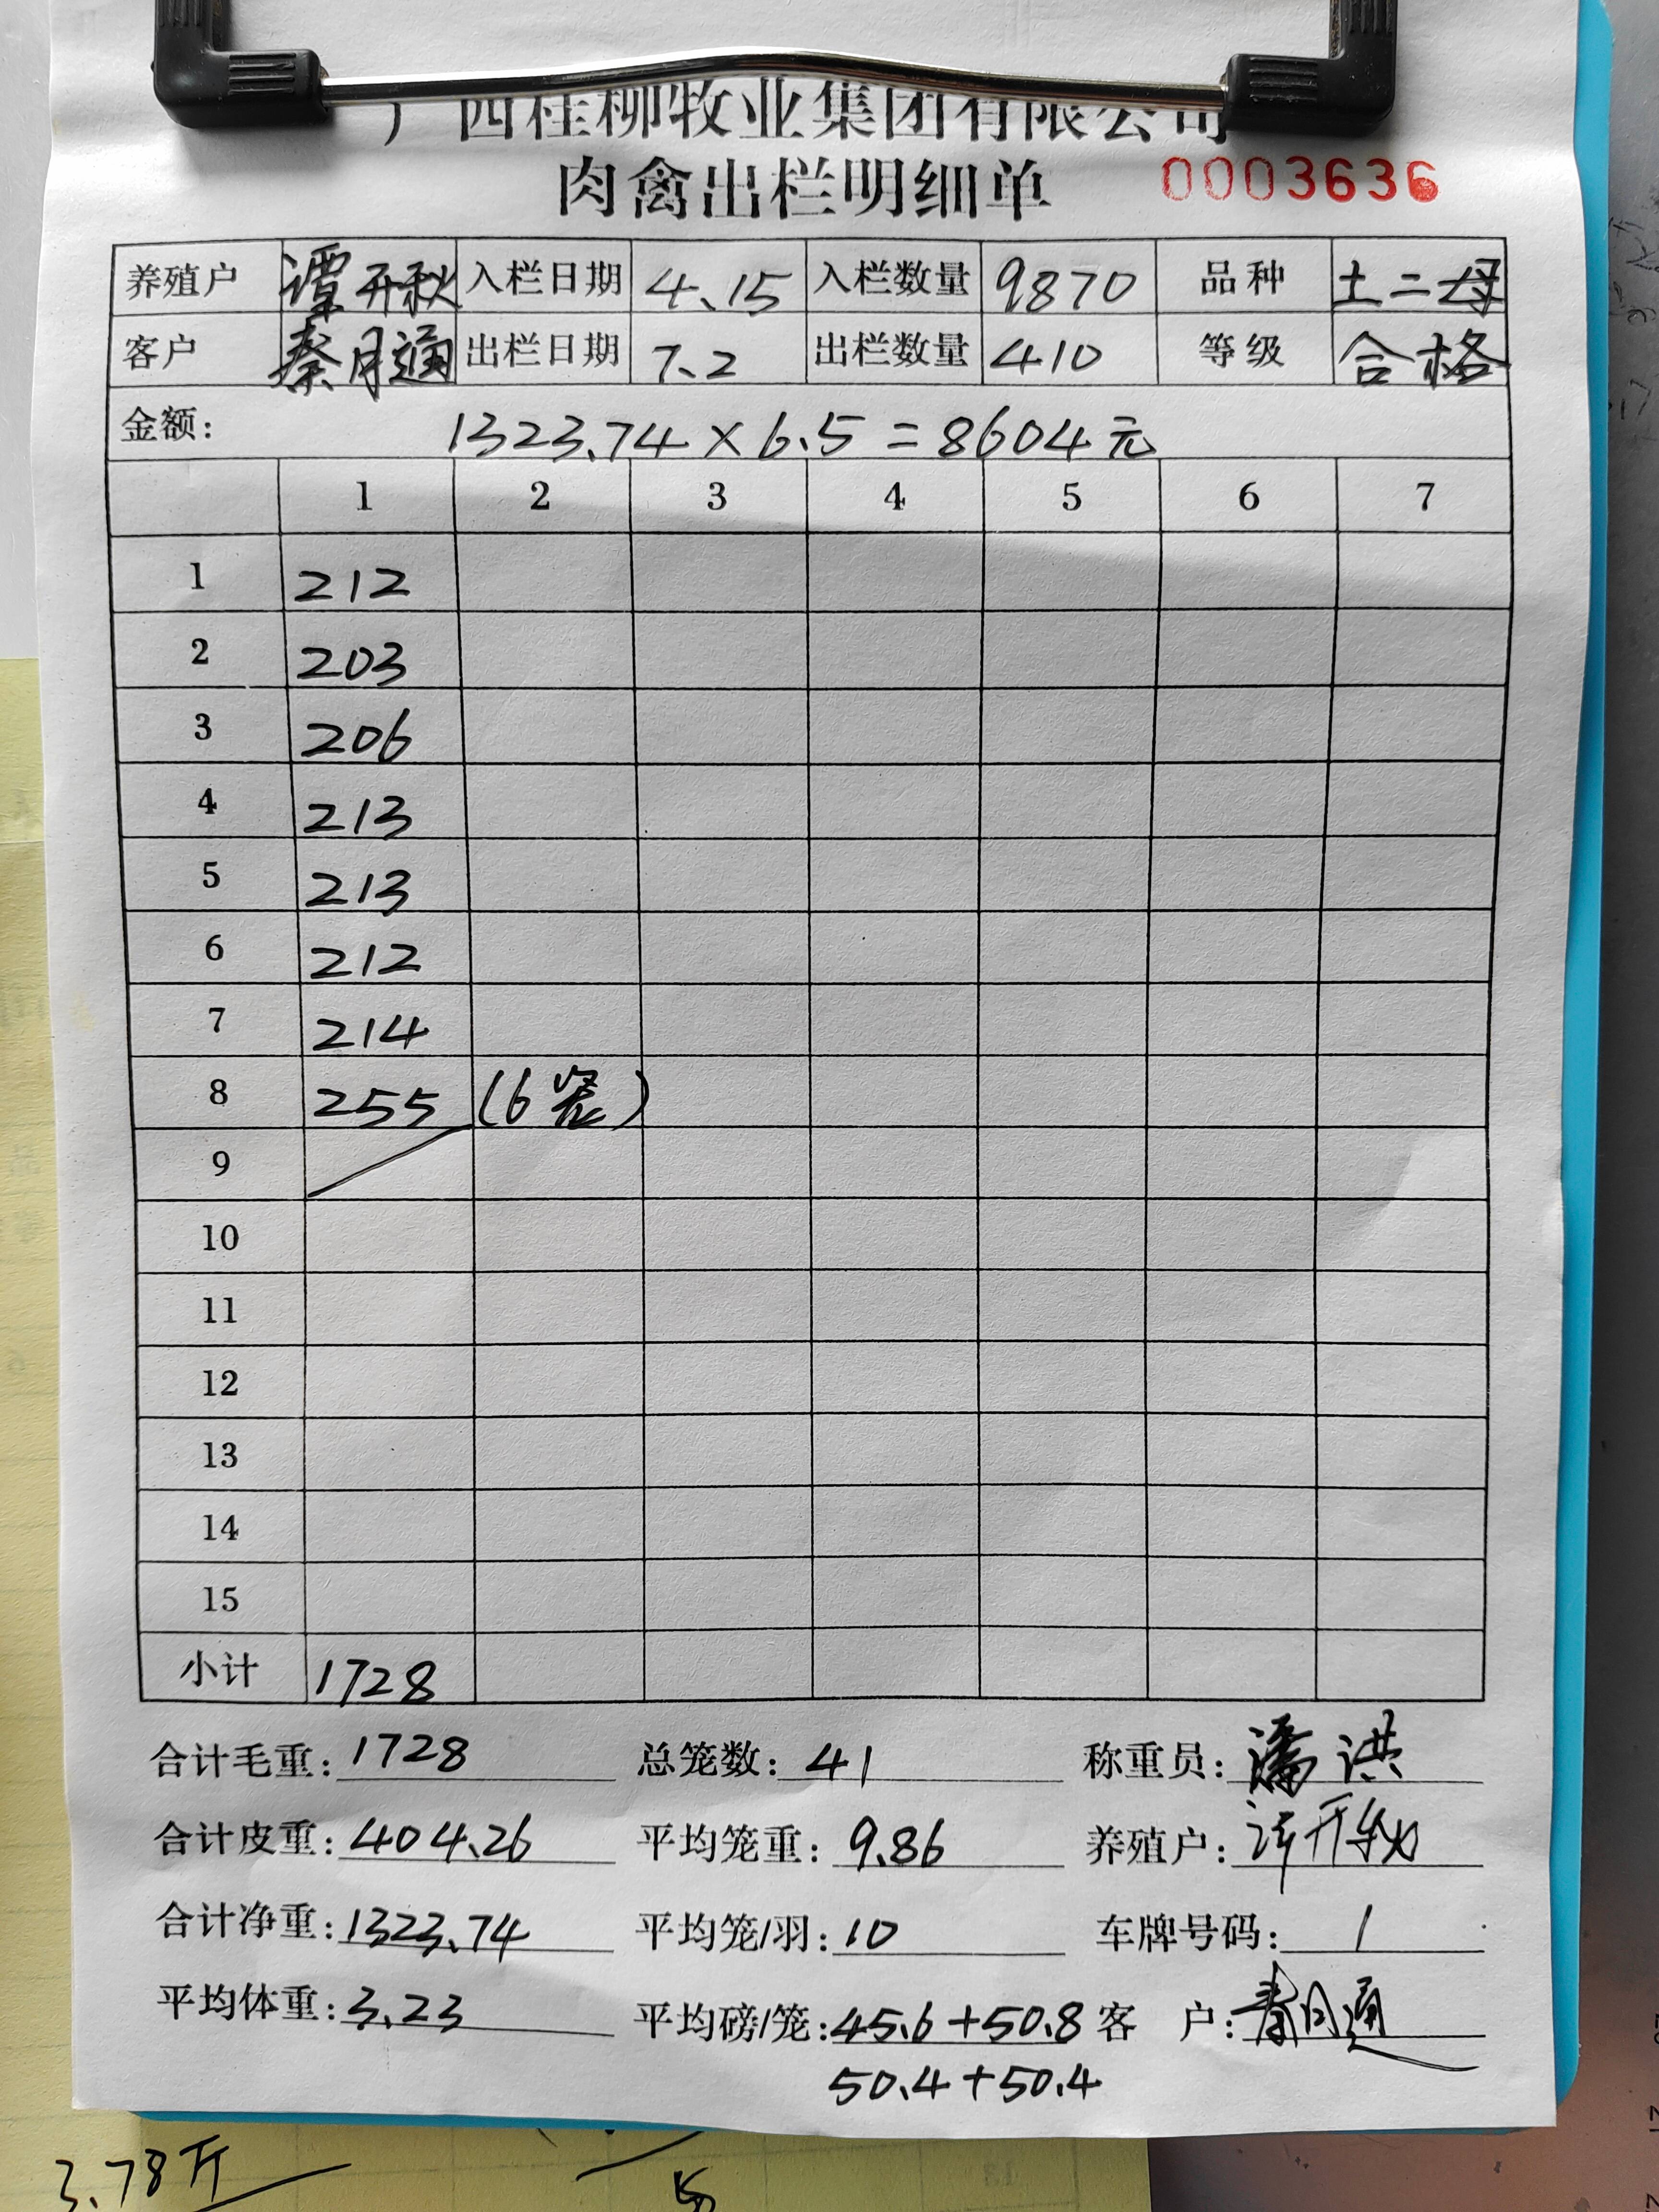 广西桂柳牧业集团有限公司
肉禽出栏明细单 0003636
养殖户 谭开秋 入栏日期 4.15 入栏数量 9870 品种 土二母
客户 秦月通 出栏日期 7.2 出栏数量 410 等级 合格
金额: 1323.74×6.5=8604元
1 2 3 4 5 6 7
1 212
2 203
3 206
4 213
5 213
6 212
7 214
8 255 (6笼)
9
10
11
12
13
14
15
小计 1728
合计毛重: 1728 总笼数: 41 称重员: 潘洪
合计皮重: 404.26 平均笼重: 9.86 养殖户: 谭开秋
合计净重: 1323.74 平均笼/羽: 10 车牌号码: 1
平均体重: 3.23 平均磅/笼: 45.6+50.8 客 户: 秦月通
50.4+50.4
3.78斤